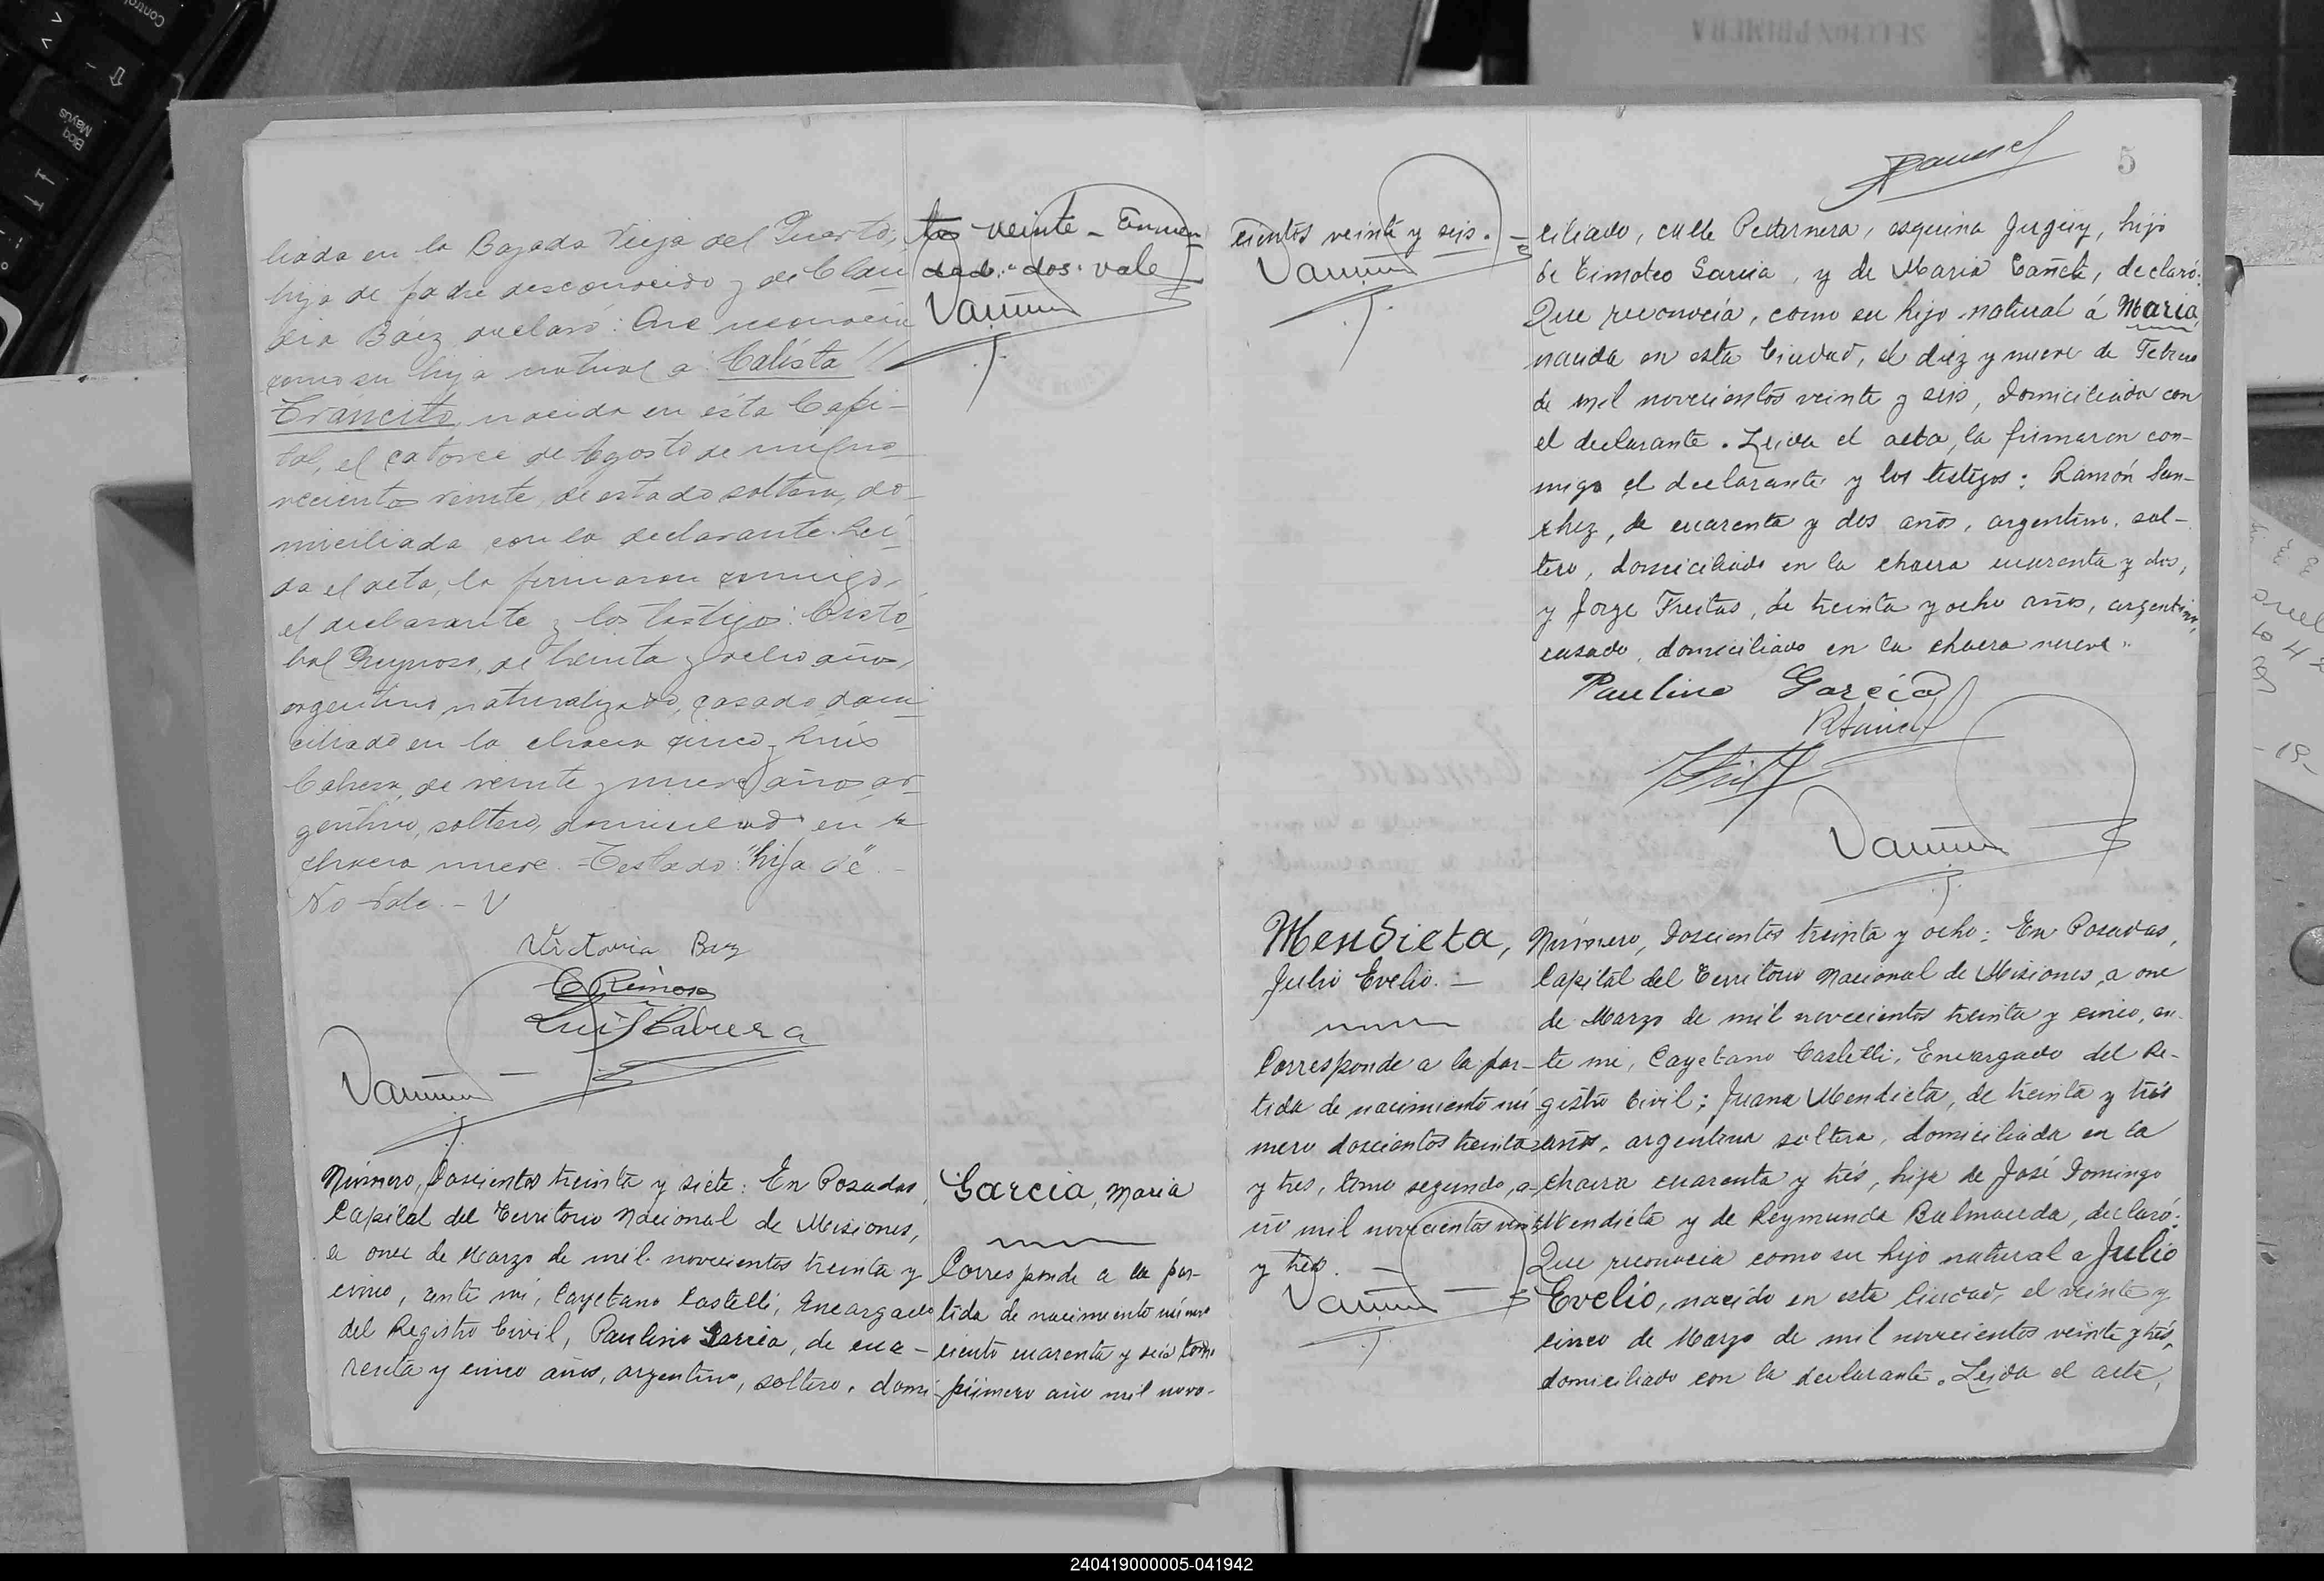 Control
Bloq
Mayús
SECCION PRIMERA
liada en la Bajada Vieja del Puerto,
hija de padre desconocido y de Clau-
dia Báez declaró: Que reconocía
como su hija natural a Calista
Tráncito, nacida en ésta Capi-
tal, el catorce de Agosto de mil no-
vecientos veinte, de estado soltera, do-
miciliada con la declarante. Leí-
da el acta, la firmaron conmigo,
el declarante y los testigos: Cristó-
bal Reynoso, de treinta y ocho años,
argentino naturalizado, casado domi-
ciliado en la chacra cinco y Luis
Cabrera, de veinte y nueve años ar-
gentino, soltero, domiciliado en la
chacra nueve. - Testado: "hija de" -
No Vale. -
Victoria Baz
C Reinoso
Luis Cabrera
Número, Doscientos treinta y siete: En Posadas,
Capital del Territorio Nacional de Misiones,
a once de Marzo de mil novecientos treinta y
cinco, ante mí, Cayetano Castelli, Encargado
del Registro Civil, Paulino García, de cua-
renta y cinco años, argentino, soltero, domi-
tos veinte - Enmen
dado: "dos" vale
García, María
Corresponde a la par-
tida de nacimiento número
ciento cuarenta y seis tomo
primero año mil nove-
cientos veinte y seis. -
5
ciliado, calle Pedernera, esquina Jujuy, hijo
de Timoteo García, y de María Cañete, declaró:
Que reconocía, como su hijo natural á María,
nacida en esta Ciudad, el diez y nueve de Febrero
de mil novecientos veinte y seis, domiciliada con
el declarante. Leida el acta, la firmaron con-
migo el declarante y los testigos: Ramón San-
chez, de cuarenta y dos años, argentino, sol-
tero, domiciliado en la chacra cuarenta y dos,
y Jorge Freitas, de treinta y ocho años, argentino,
casado, domiciliado en la chacra nueve.
Paulino García
Mendieta,
Julio Evelio. -
Corresponde a la par-
tida de nacimiento nú-
mero doscientos treinta
y tres, tomo segundo, a-
ño mil novecientos veinte
y tres. -
Número, Doscientos treinta y ocho: En Posadas,
Capital del Territorio Nacional de Misiones, a once
de Marzo de mil novecientos treinta y cinco, an-
te mí, Cayetano Castelli, Encargado del Re-
gistro Civil: Juana Mendieta, de treinta y trés
años, argentina soltera, domiciliada en la
chacra cuarenta y trés, hija de José Domingo
Mendieta y de Reymunda Balmaceda, declaró:
Que reconocia como su hijo natural a Julio
Evelio, nacido en esta Ciudad, el veinte y
cinco de Marzo de mil novecientos veinte y trés,
domiciliado con la declarante. Leida el acta,
240419000005-041942